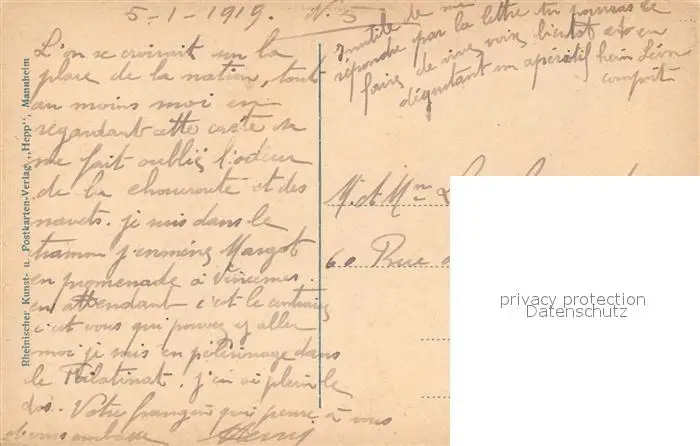 5-1-1919. N. 5
L'on se croirait sur la
place de la nation, tout
au moins moi en
regardant cette carte sa
me fait oublié l'odeur
de la choucroute et des
navets. je suis dans le
tramm j'emméne Margot
en promenade à Vincennes.
en attendant c'est le contraire
c'est vous qui pouvez y aller
moi je suis en pélérinage dans
le Palatinat. j'en ai plein le
dos. Votre frangin qui pense à vous
et vous embrasse Henri
Inutile de me
répondre par la lettre tu pourras le
faire de vive voix bientot en
dégustant un apéritif hein Léon
compris
M. et Mme
60 Rue
Rheinischer Kunst- u. Postkarten-Verlag „Hepp“, Mannheim
privacy protection
Datenschutz